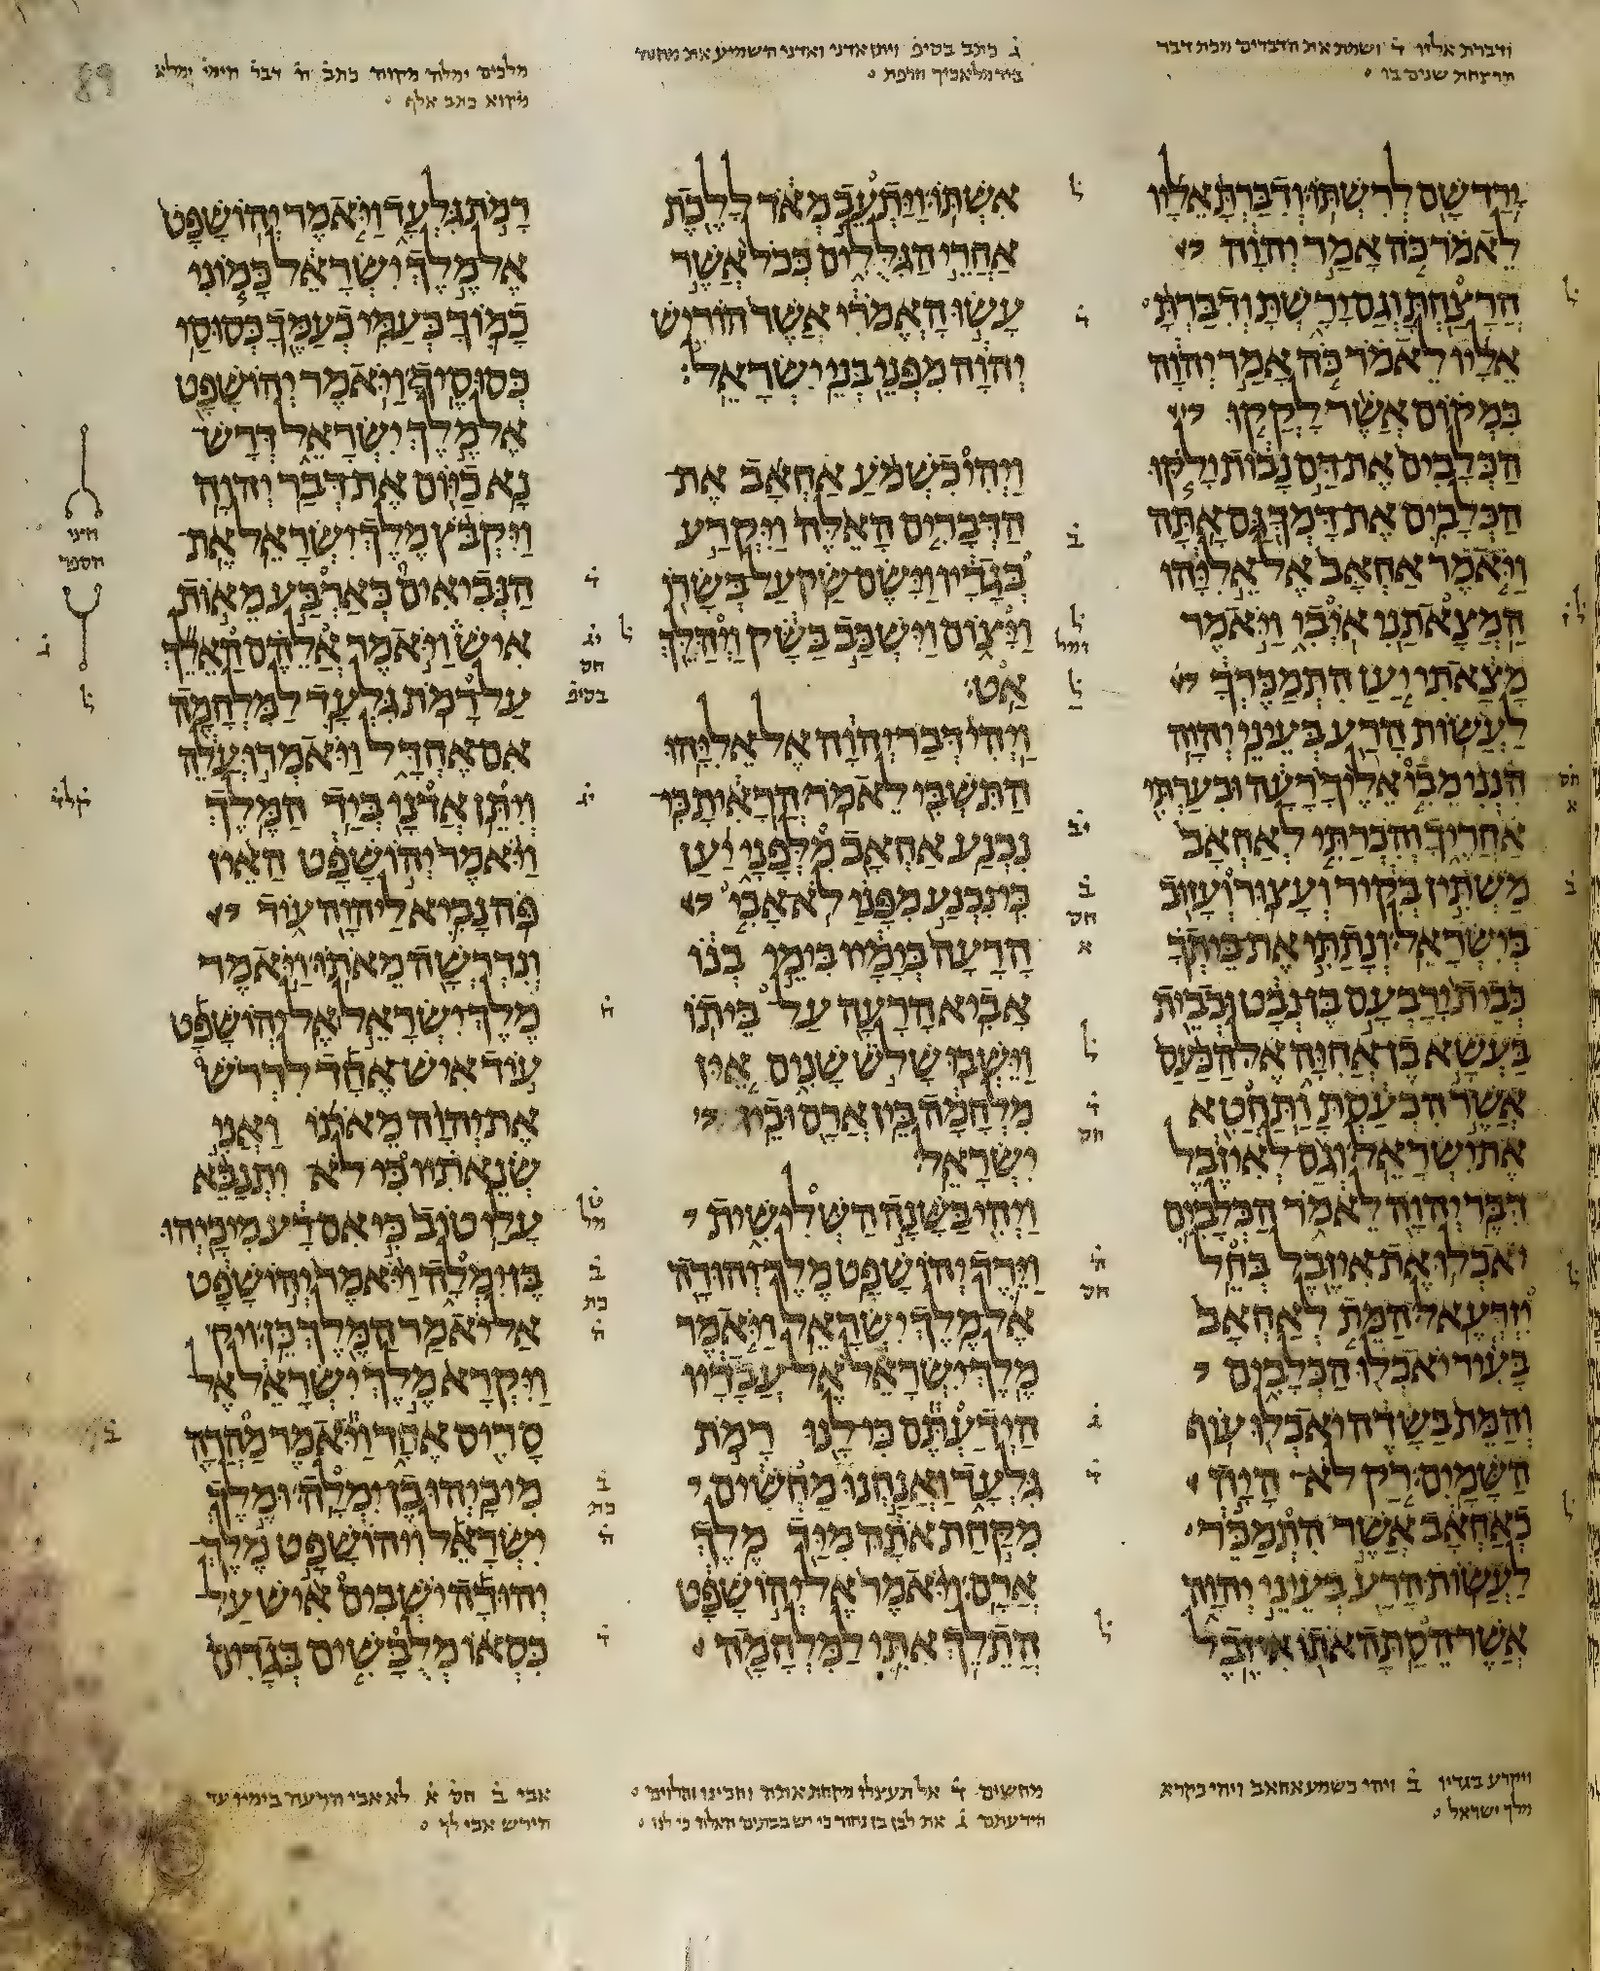 ודברת אליו ד ושמת את הדברים מכת דבר
הרצחת שנים בו
ג כתב בסיפ ויתן אדני ואדני השמיע את מחנה
ביד מלאכיך חרפת
מלכים ימלה מקוה כתב ה דבר הימי ימלא
מקוא כתב אלף
ירד שם לרשתו ודברת אליו
לאמר כה אמר יהוה
הרצחת וגם ירשת ודברת
אליו לאמר כה אמר יהוה
במקום אשר לקקו
הכלבים את דם נבות ילקו
הכלבים את דמך גם אתה
ויאמר אחאב אל אליהו
המצאתני איבי ויאמר
מצאתי יען התמכרך
לעשות הרע בעיני יהוה
הנני מבי אליך רעה ובערתי
אחריך והכרתי לאחאב
משתין בקיר ועצור ועזוב
בישראל ונתתי את ביתך
כבית ירבעם בן נבט וכבית
בעשא בן אחיה אל הכעס
אשר הכעסת ותחטא
את ישראל וגם לאיזבל
דבר יהוה לאמר הכלבים
יאכלו את איזבל בחל
יזרעאל המת לאחאב
בעיר יאכלו הכלבים
והמת בשדה יאכלו עוף
השמים רק לא היה
כאחאב אשר התמכר
לעשות הרע בעיני יהוה
אשר הסתה אתו איזבל
אשתו ויתעב מאד ללכת
אחרי הגללים ככל אשר
עשו האמרי אשר הוריש
יהוה מפני בני ישראל
ויהי כשמע אחאב את
הדברים האלה ויקרע
בגדיו וישם שק על בשרו
ויצום וישכב בשק ויהלך
אט
ויהי דבר יהוה אל אליהו
התשבי לאמר הראית כי
נכנע אחאב מלפני יען
כי נכנע מפני לא אבי
הרעה בימיו בימי בנו
אביא הרעה על ביתו
וישבו שלש שנים אין
מלחמה בין ארם ובין
ישראל
ויהי בשנה השלישית
וירד יהושפט מלך יהודה
אל מלך ישראל ויאמר
מלך ישראל אל עבדיו
הידעתם כי לנו רמת
גלעד ואנחנו מחשים
מקחת אתה מיד מלך
ארם ויאמר אל יהושפט
התלך אתי למלחמה
רמת גלעד ויאמר יהושפט
אל מלך ישראל כמוני
כמוך כעמי כעמך כסוסי
כסוסיך ויאמר יהושפט
אל מלך ישראל דרש
נא כיום את דבר יהוה
ויקבץ מלך ישראל את
הנביאים כארבע מאות
איש ויאמר אלהם האלך
על רמת גלעד למלחמה
אם אחדל ויאמרו עלה
ויתן אדני ביד המלך
ויאמר יהושפט האין
פה נביא ליהוה עוד
ונדרשה מאתו ויאמר
מלך ישראל אל יהושפט
עוד איש אחד לדרש
את יהוה מאתו ואני
שנאתיו כי לא יתנבא
עלי טוב כי אם רע מיכיהו
בן ימלה ויאמר יהושפט
אל יאמר המלך כן
ויקרא מלך ישראל אל
סריס אחד ויאמר מהרה
מיכיהו בן ימלה ומלך
ישראל ויהושפט מלך
יהודה ישבים איש על
כסאו מלבשים בגדים
חצי
הספר
ויקרע בגדיו ב ויהי כשמע אחאב ויהי כקרא
מלך ישראל
מחשים ד אל תעצלו מקחת אותה וחכינו והלוים
הידעתם ג את לבן בן נחור כי יש בבתים האלה כי לנו
אבי ב חס א לא אבי הרעה בימיו עד
חירש אבי לך